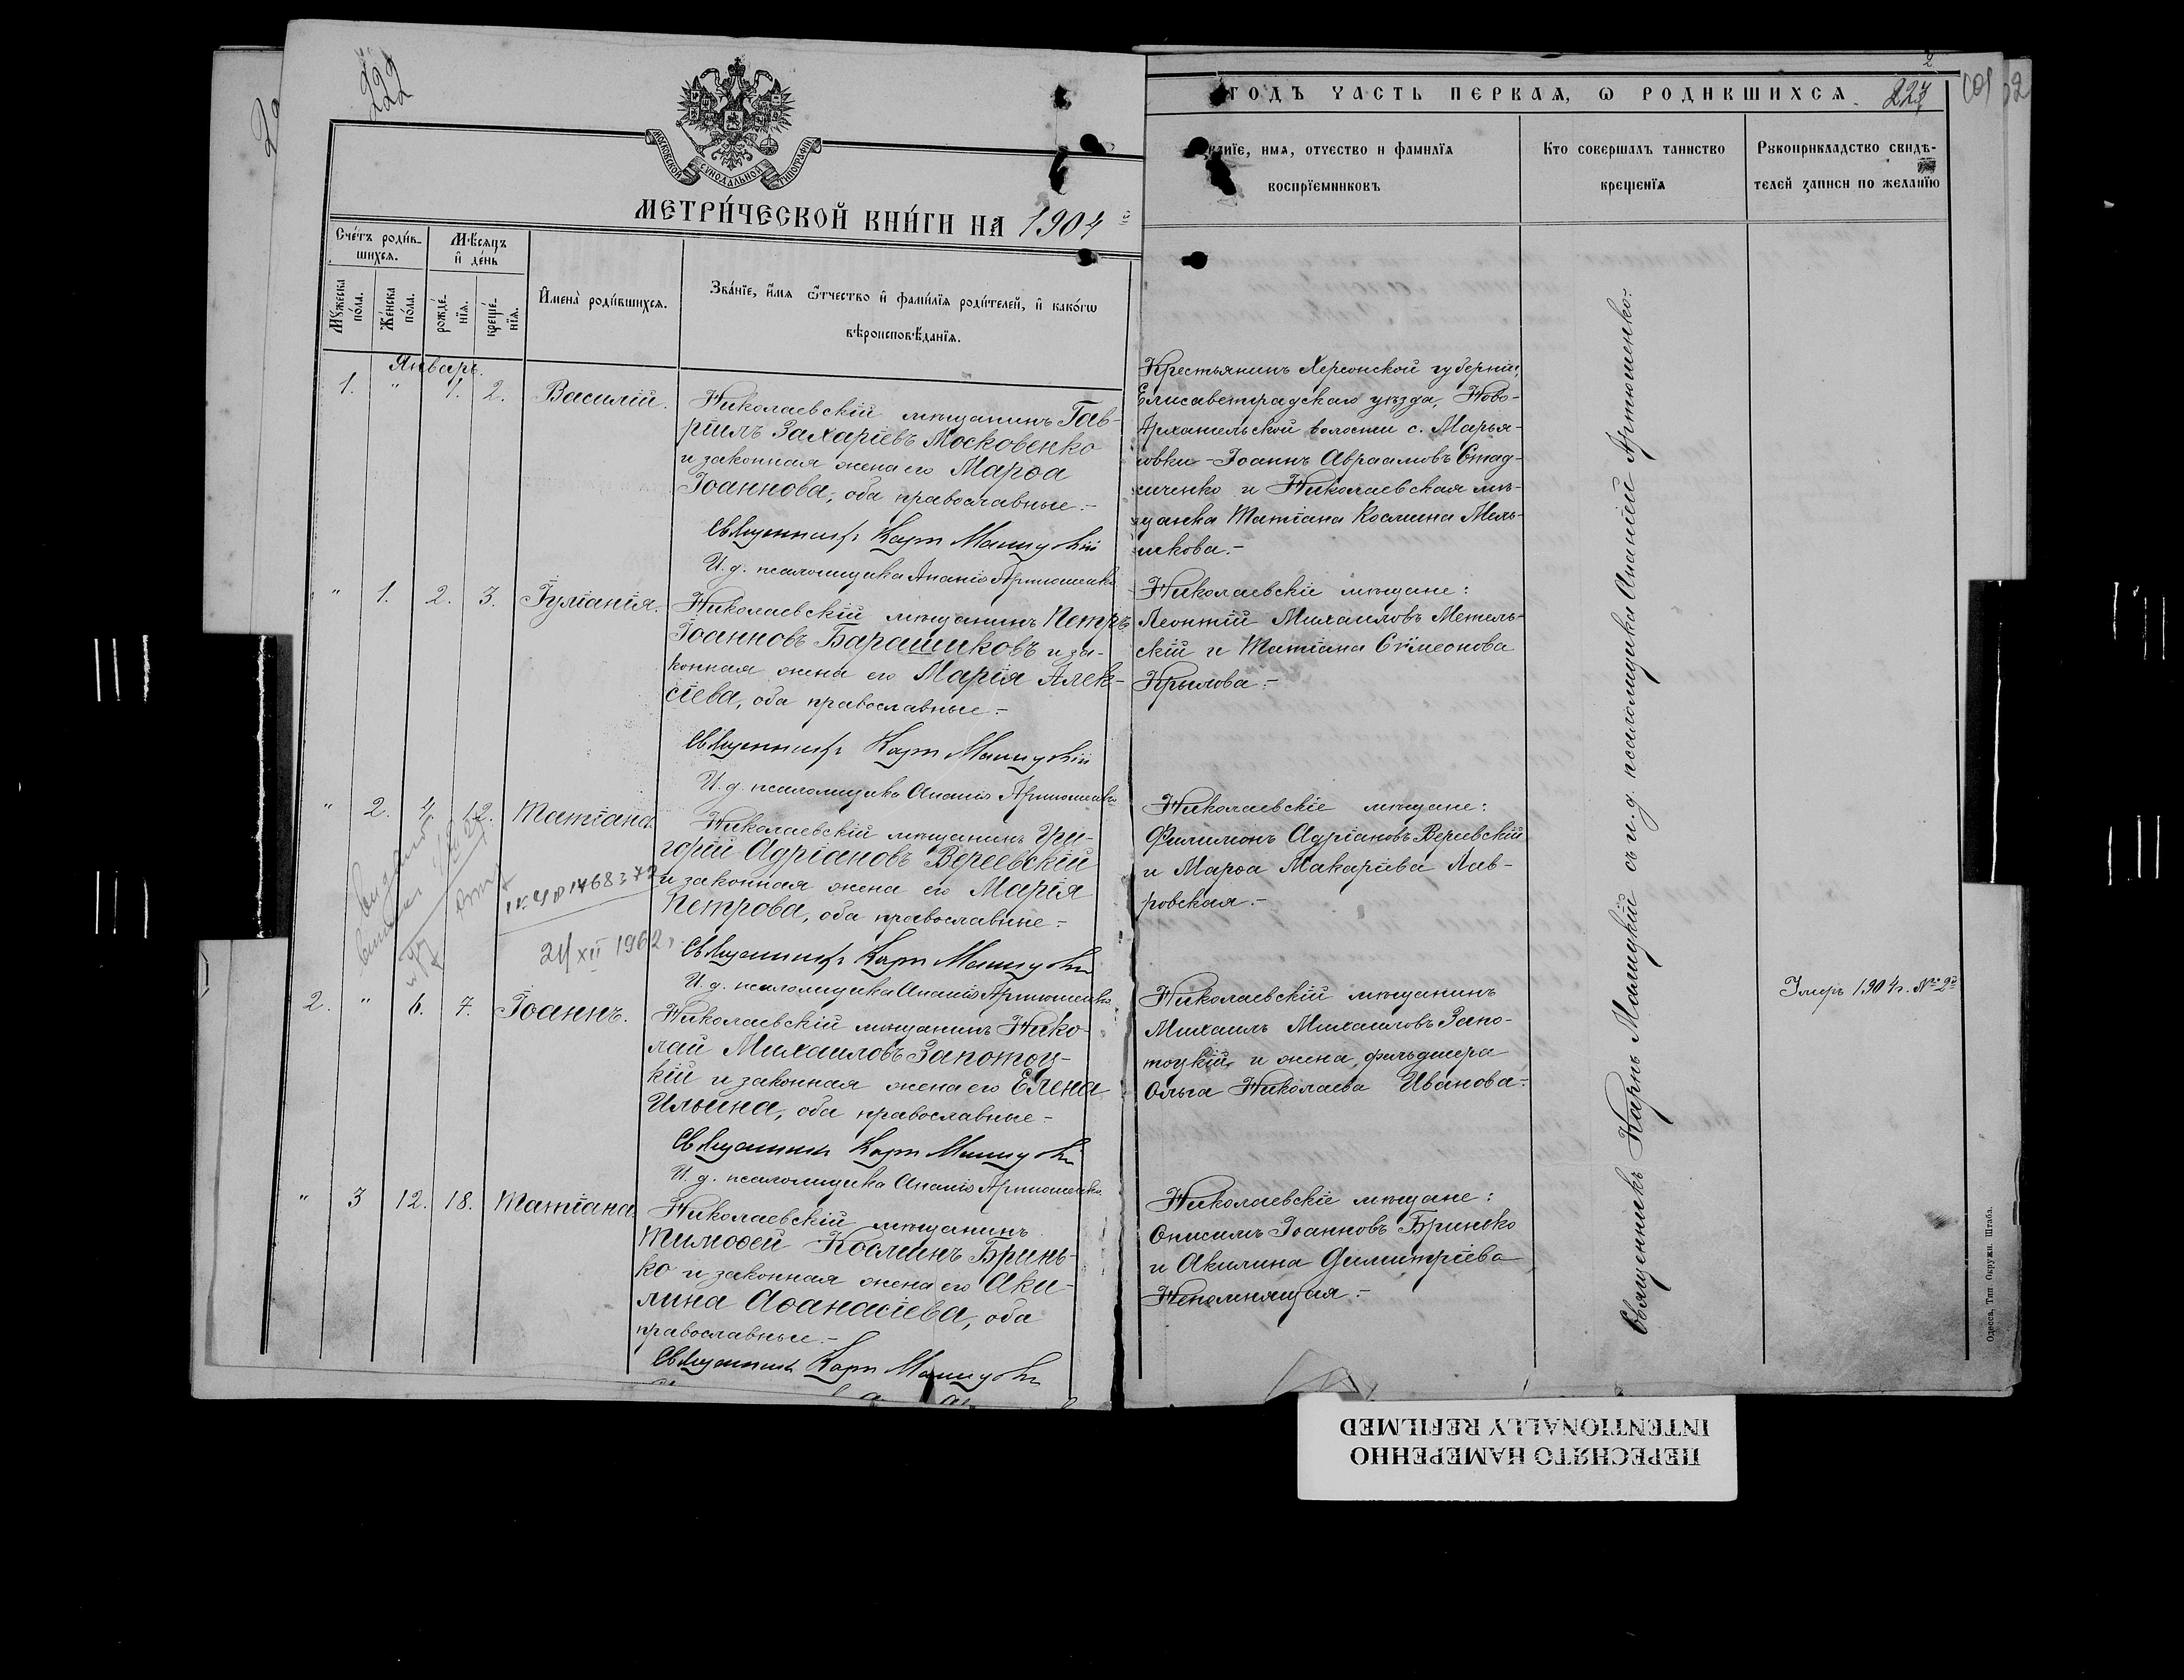 222
МОСКОВСКОЙ СИНОДАЛЬНОЙ ТИПОГРАФІИ
МЕТРИ́ЧЕСКОЙ КНИ́ГИ НА 1904 й
Сче́тъ роди́в-
шихсѧ.
Мѣ́сѧцъ
и҆ де́нь
Мꙋ́жеска
по́ла.
Же́нска
по́ла.
рожде́-
нїѧ.
креще́-
нїѧ.
И҆мена̀ роди́вшихсѧ.
Зва́нїе, и҆́мѧ ѻ҆́тчество и҆ фами́лїѧ роди́телей, и҆ како́гѡ
вѣроисповѣ́данїѧ.
Январь.
1. " 1. 2. Василій.
Николаевскій мѣщанинъ Гав-
ріилъ Захаріевъ Московенко
и законная жена его Марѳа
Іоаннова, оба православные.-
Священникъ Карп
И. д. псаломщика Ананій Артюшенко
" 1. 2. 3. Іуліанія.
Николаевскій мѣщанинъ Петръ
Іоанновъ Барашиковъ и за-
конная жена его Марія Алек-
сіева, оба православные.-
Священникъ Карп
И. д. псаломщика Ананій Артюшенко
" 2. 4. 12. Татіана.
Николаевскій мѣщанинъ Гри-
горій Адріановъ Вереевскій
и законная жена его Марія
Петрова, оба православные.-
21/XII 1962
Священникъ Карп
И. д. псаломщика Ананій Артюшенко
2. " 6. 7. Іоаннъ.
Николаевскій мѣщанинъ Нико-
лай Михаиловъ Запотоц-
кій и законная жена его Елена
Ильина, оба православные-
Священникъ Карп
И. д. псаломщика Ананій Артюшенко
" 3 12. 18. Татіана.
Николаевскій мѣщанинъ
Тимоѳей Косминъ Бринь-
ко и законная жена его Аки-
лина Аѳанасіева, оба
православные.-
Священникъ Карп
2
ГОДЪ ЧАСТЬ ПЕРВАЯ, Ѡ РОДИВШИХСЯ. 223
нїе, имѧ, отчество и фамилїѧ
воспрїемниковъ
Кто совершалъ таинство
крещенїѧ
Рꙋкоприкладство свидѣ-
телей записи по желанїю
Крестьянинъ Херсонской губерніи,
Елисаветградскаго уѣзда, Ново-
Архангельской волости с. Марья-
новки - Іоаннъ Авраамовъ Стад-
ниченко и Николаевская мѣ-
щанка Татіана Космина Мель-
никова.-
Николаевскіе мѣщане:
Леонтій Михаиловъ Метель-
скій и Татіана Сѵмеонова
Крылова.-
Николаевскіе мѣщане:
Филимонъ Адріановъ Вереевскій
и Марѳа Макаріева Лав-
ровская.-
Николаевскій мѣщанинъ
Михаилъ Михаиловъ Запо-
тоцкій и жена фельдшера
Ольга Николаева Иванова-
Николаевскіе мѣщане:
Онисимъ Іоанновъ Бринько
и Акилина Димитріева
Непомнящая.-
Священникъ Карпъ Машицкій съ и. д. псаломщика Ананіей Артюшенко.
Умеръ 1904 г. № 2й
Одесса, Тип. Окружн. Штаба.
ПЕРЕСНЯТО НАМЕРЕННО
INTENTIONALLY REFILMED